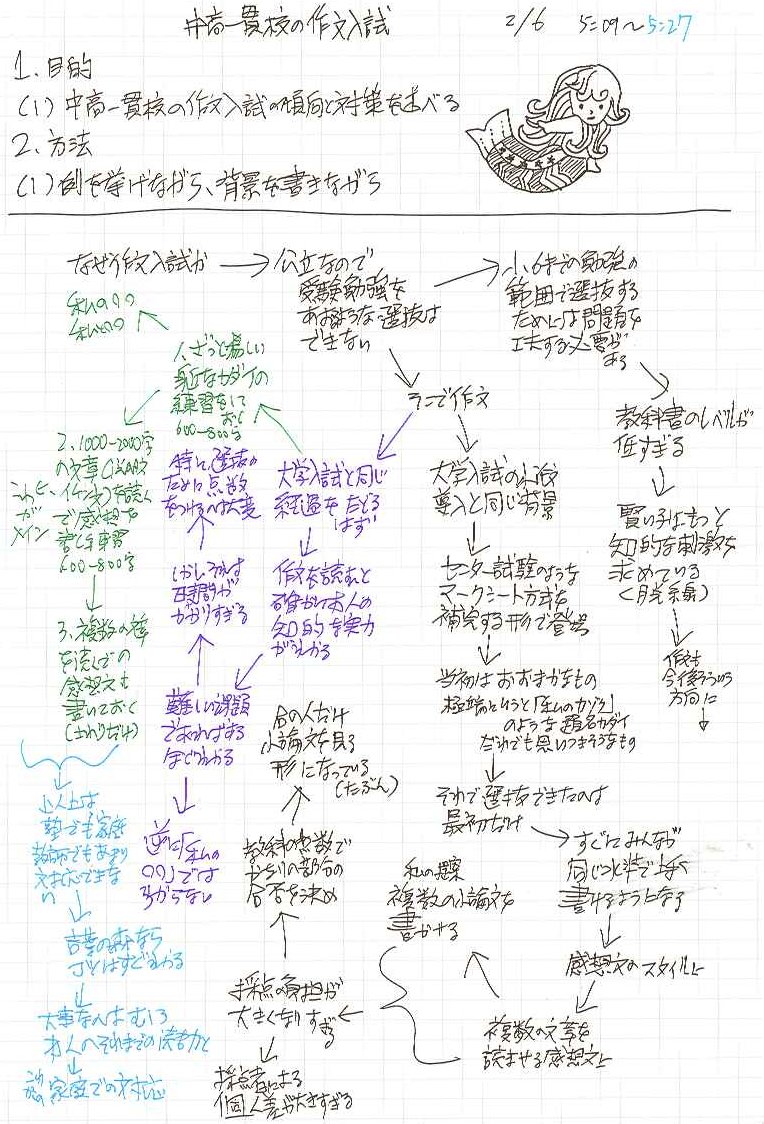 中高一貫校の作文入試
2/6 5:09〜5:27
1、目的
(1)中高一貫校の作文入試の傾向と対策を述べる
2、方法
(1)例を挙げながら、背景を書きながら
なぜ作文入試か
公立なので
受験勉強を
あおるような選抜は
できない
小6までの勉強の
範囲で選抜する
ためには問題を
工夫する必要が
ある
教科書のレベルが
低すぎる
賢い子はもっと
知的な刺激を
求めている
作文も
今後そういう
方向に
そこで作文
大学入試の小論
導入と同じ背景
センター試験のような
マークシート方式を
補完する形で登場
当初はおおまかなもの
極端にいうと「私のカゾク」
のような題名カダイ
だれでも思いつきそうなもの
それで選抜できたのは
最初だけ
すぐにみんなが
同じ水準で上手く
書けるようになる
感想文のスタイルに
複数の文章を
読ませる感想文に
私の提案
複数の小論文を
書かせる
採点の負担が
大きくなりすぎる
採点者による
個人差が大きすぎる
教科の点数で
の部分の
合否を決め
合の人だけ
小論文を見る
形になっている
(たぶん)
大学入試と同じ
経過をたどる
はず
作文を読むと
確かに本人の
知的な実力
がわかる
難しい課題
であればある
ほどわかる
逆に「私の
〇〇」では
分からない
しかしそれは
時間が
かかりすぎる
特に、選抜の
ために点数
をつけるのは大変
1、ざっと易しい
身近なカダイの
練習をして
おく
600-800字
私の〇〇
私と〇〇
2、1000-2000字
の文章
を読ん
で感想を
書く練習
600-800字
これが
メイン
3、複数の文章
を読んでの
感想文も
書いておく
以上は
塾でも家庭
教師でもあまり
対応できな
い
言葉の森なら
コツはすぐわかる
大事なのはむしろ
本人のそれまでの読書力と
これからの家庭での対応